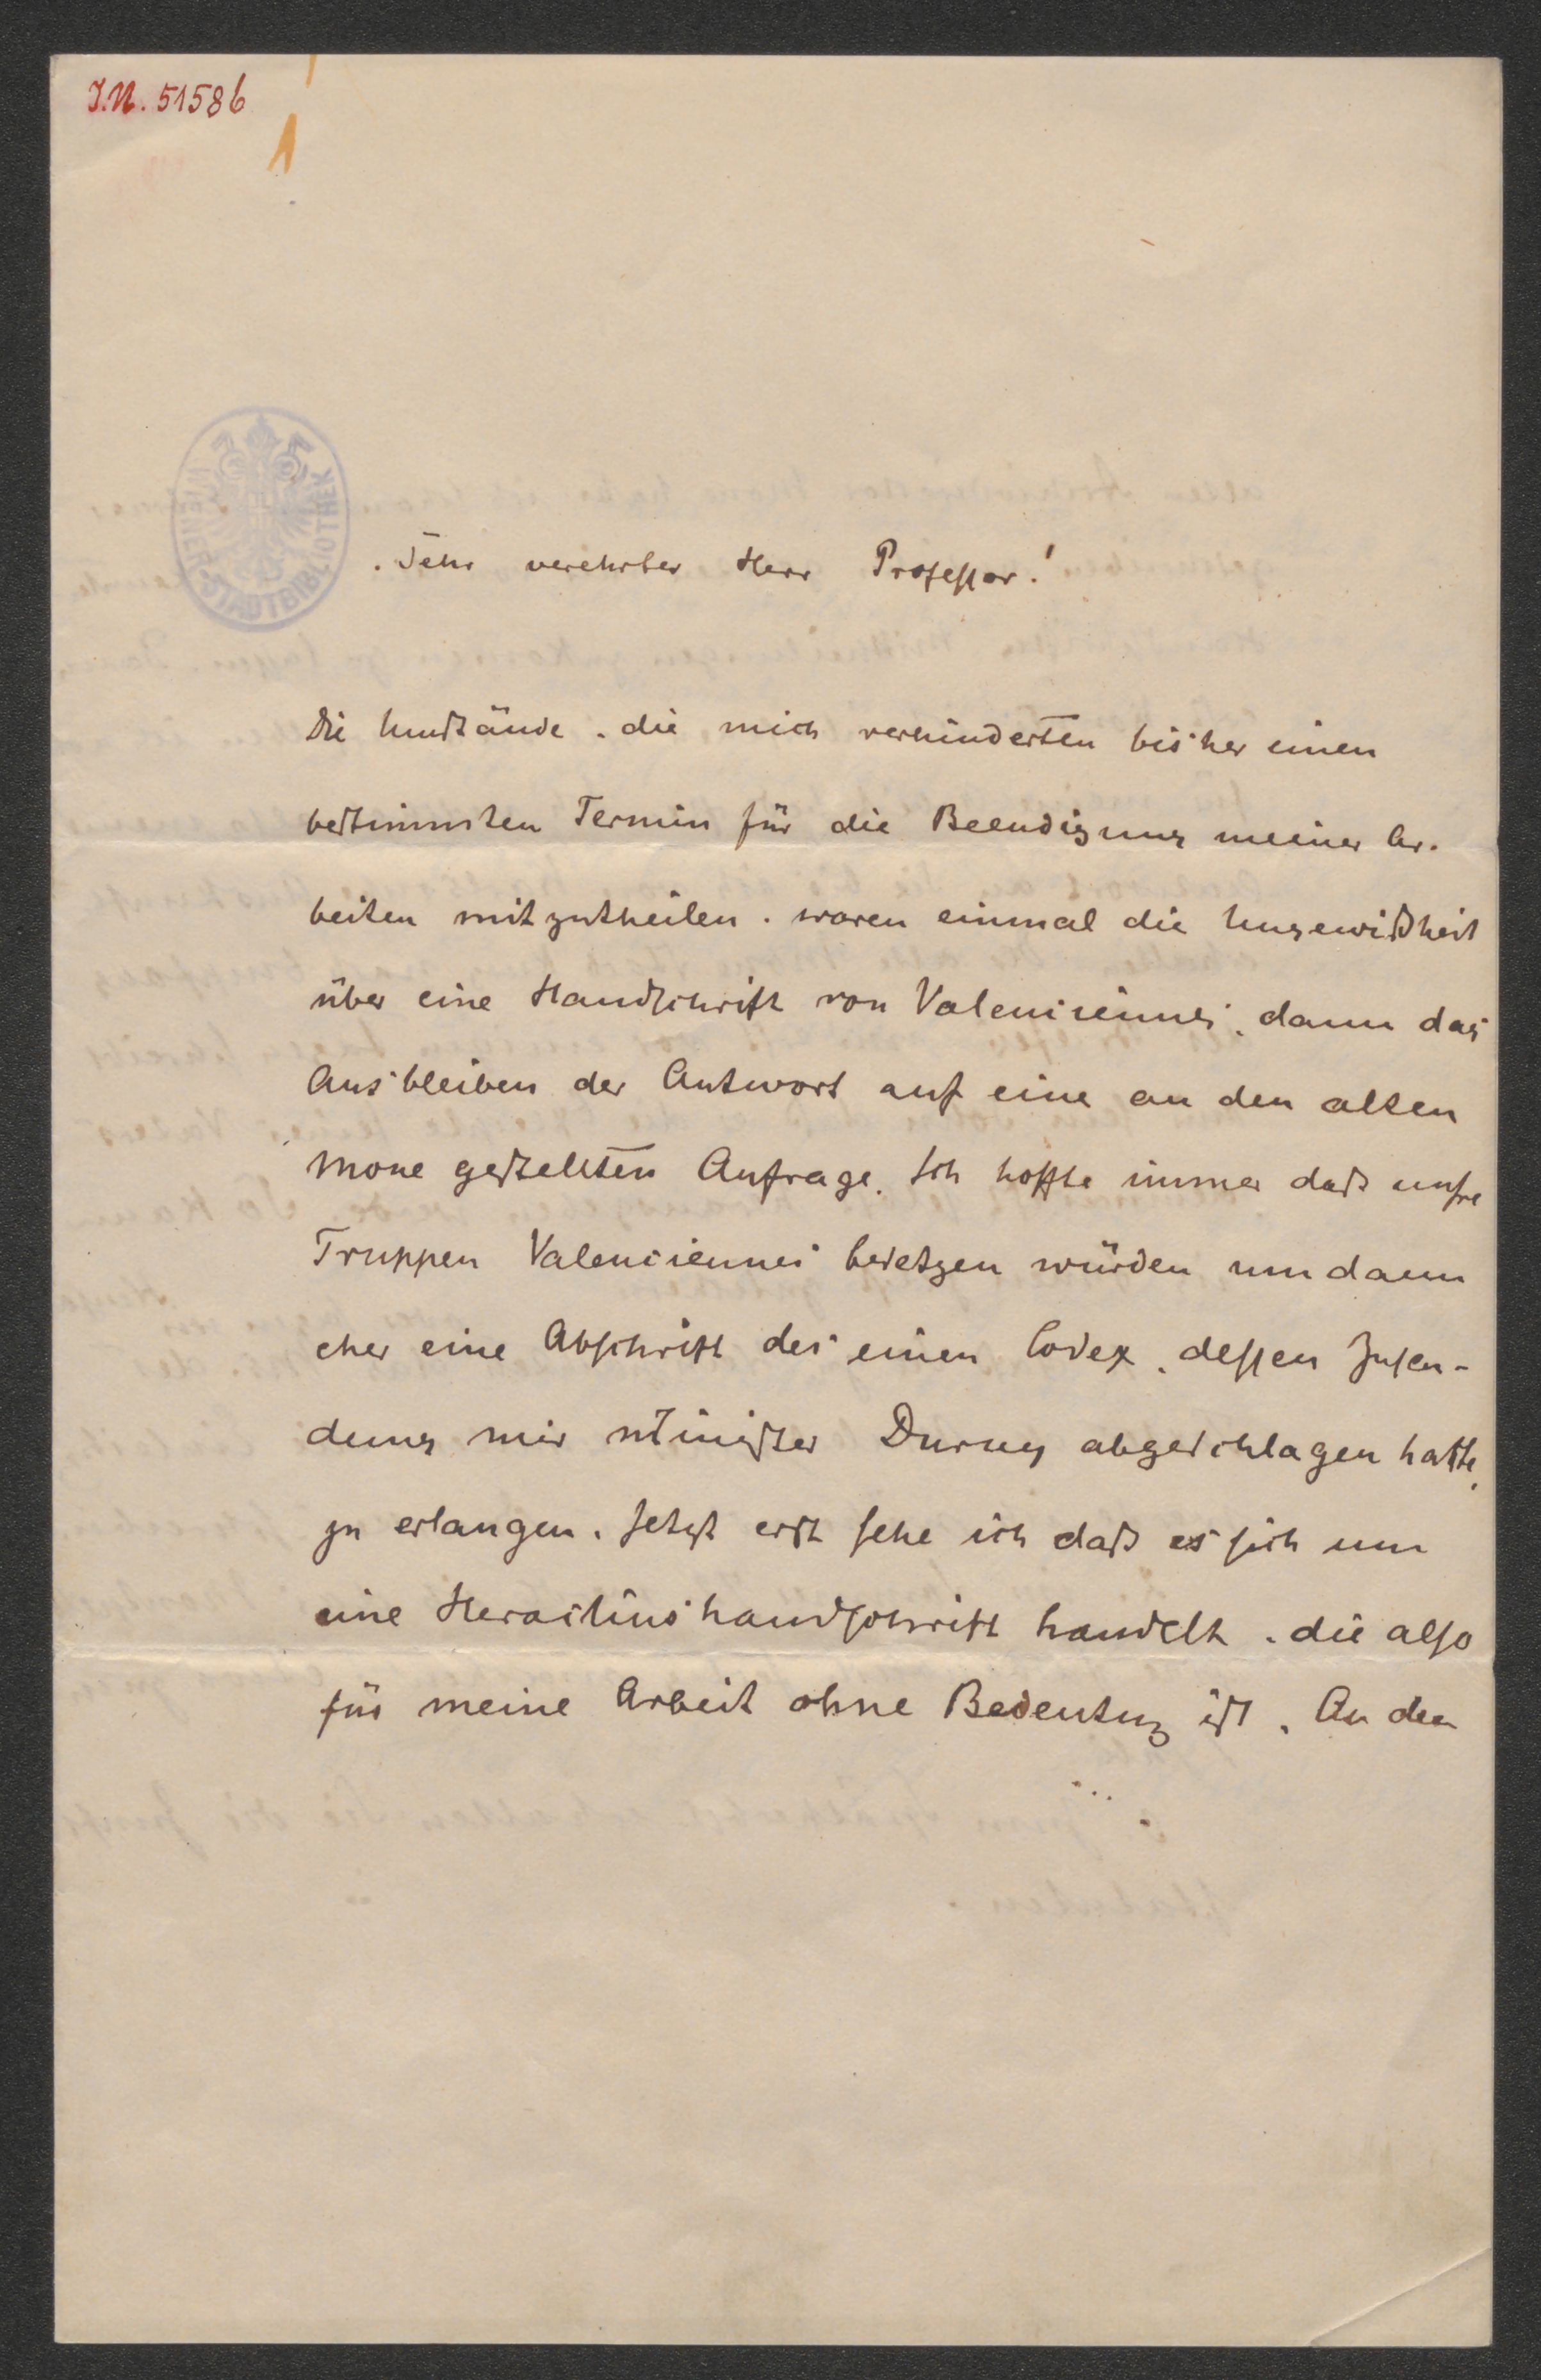 J.N. 51586
1
WIENER STADTBIBLIOTHEK
Sehr verehrter Herr Professor!
Die Umstände, die mich verhinderten bisher einen
bestimmten Termin für die Beendigung meiner Ar-
beiten mitzutheilen, waren einmal die Ungewißheit
über eine Handschrift von Valenciennes, dann das
Ausbleiben der Antwort auf eine an den alten
Mone gestellten Anfrage. Ich hoffte immer daß unsre
Truppen Valenciennes besetzen würden um dann
eher eine Abschrift des einen Codex, dessen Zusen-
dung mir Minister Duruy abgeschlagen hatte,
zu erlangen. Jetzt erst sehe ich daß es sich um
eine Heraclius handschrift handelt, die also
für meine Arbeit ohne Bedeutung ist. An den